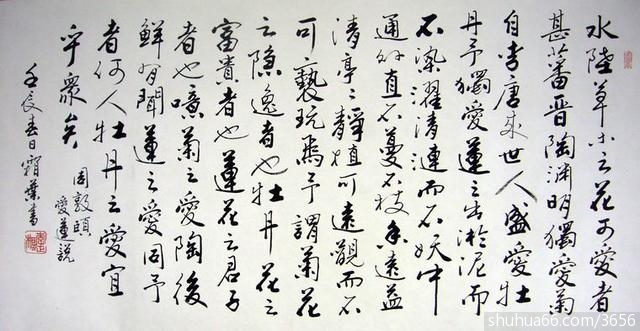 水陸草木之花可愛者
甚蕃晋陶渊明獨愛菊
自李唐来世人盛愛牡
丹予獨愛蓮之出淤泥而
不染濯清漣而不妖中
通外直不蔓不枝香遠益
清亭々静植可遠觀而不
可褻玩焉予謂菊花
之隐逸者也牡丹花之
富貴者也蓮花之君子
者也噫菊之愛陶後
鮮有聞蓮之愛同予
者何人牡丹之愛宜
乎衆矣
周敦頤
愛蓮説
壬辰春日霜葉書
shuhua66.com/3656